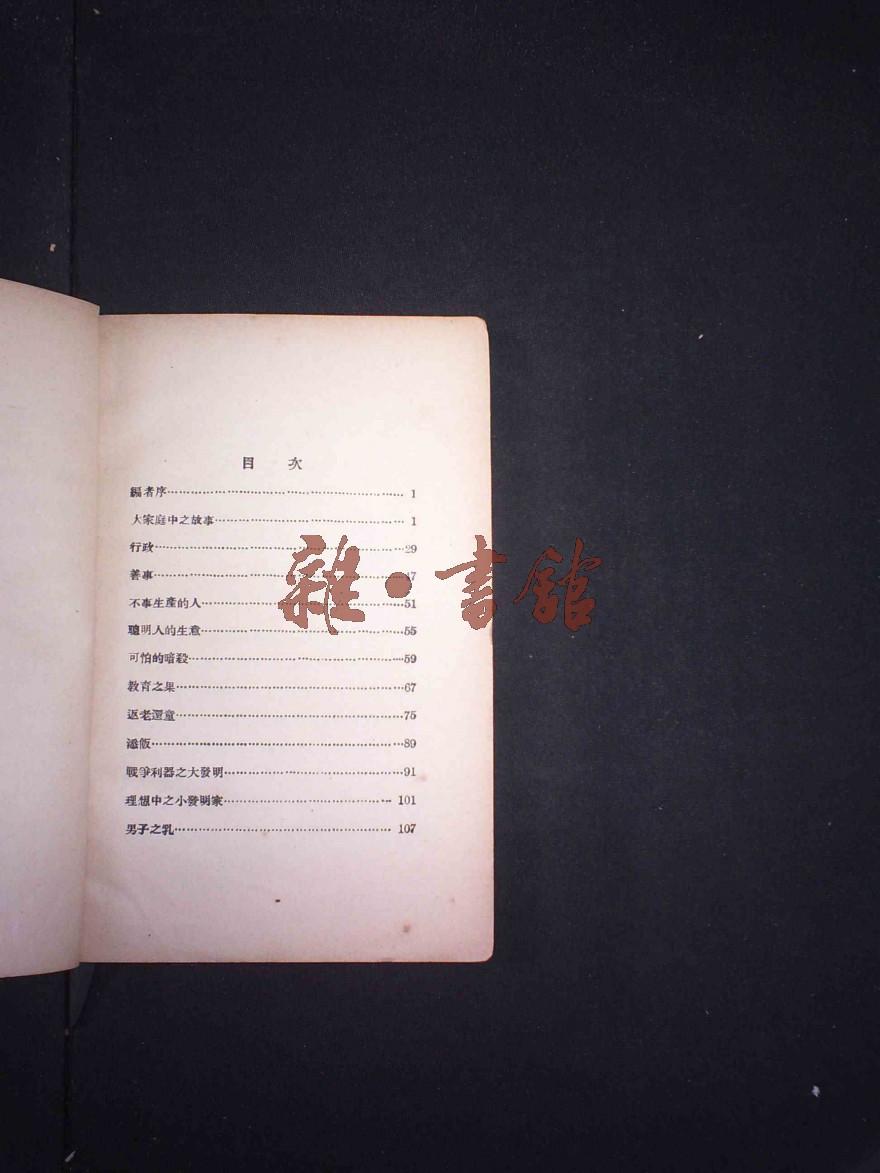 目次
編者序 1
大家庭中之故事 1
行政 29
善事 7
不事生產的人 51
聰明人的生意 55
可怕的暗殺 59
教育之果 67
返老還童 75
添飯 89
戰爭利器之大發明 91
理想中之小發明家 101
男子之乳 107
雜·書館